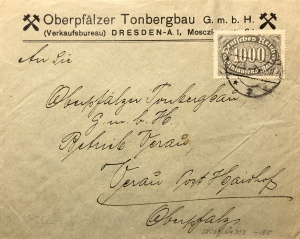 Oberpfälzer Tonbergbau G. m. b. H.
(Verkaufsbureau) DRESDEN-A. 1, Mosczi
Deutsches Reich
1000
Tausend Mark
An die
Oberpfälzer Tonbergbau
G. m. b. H
Betrieb Verau,
Verau Post Haidhof
Oberpfalz